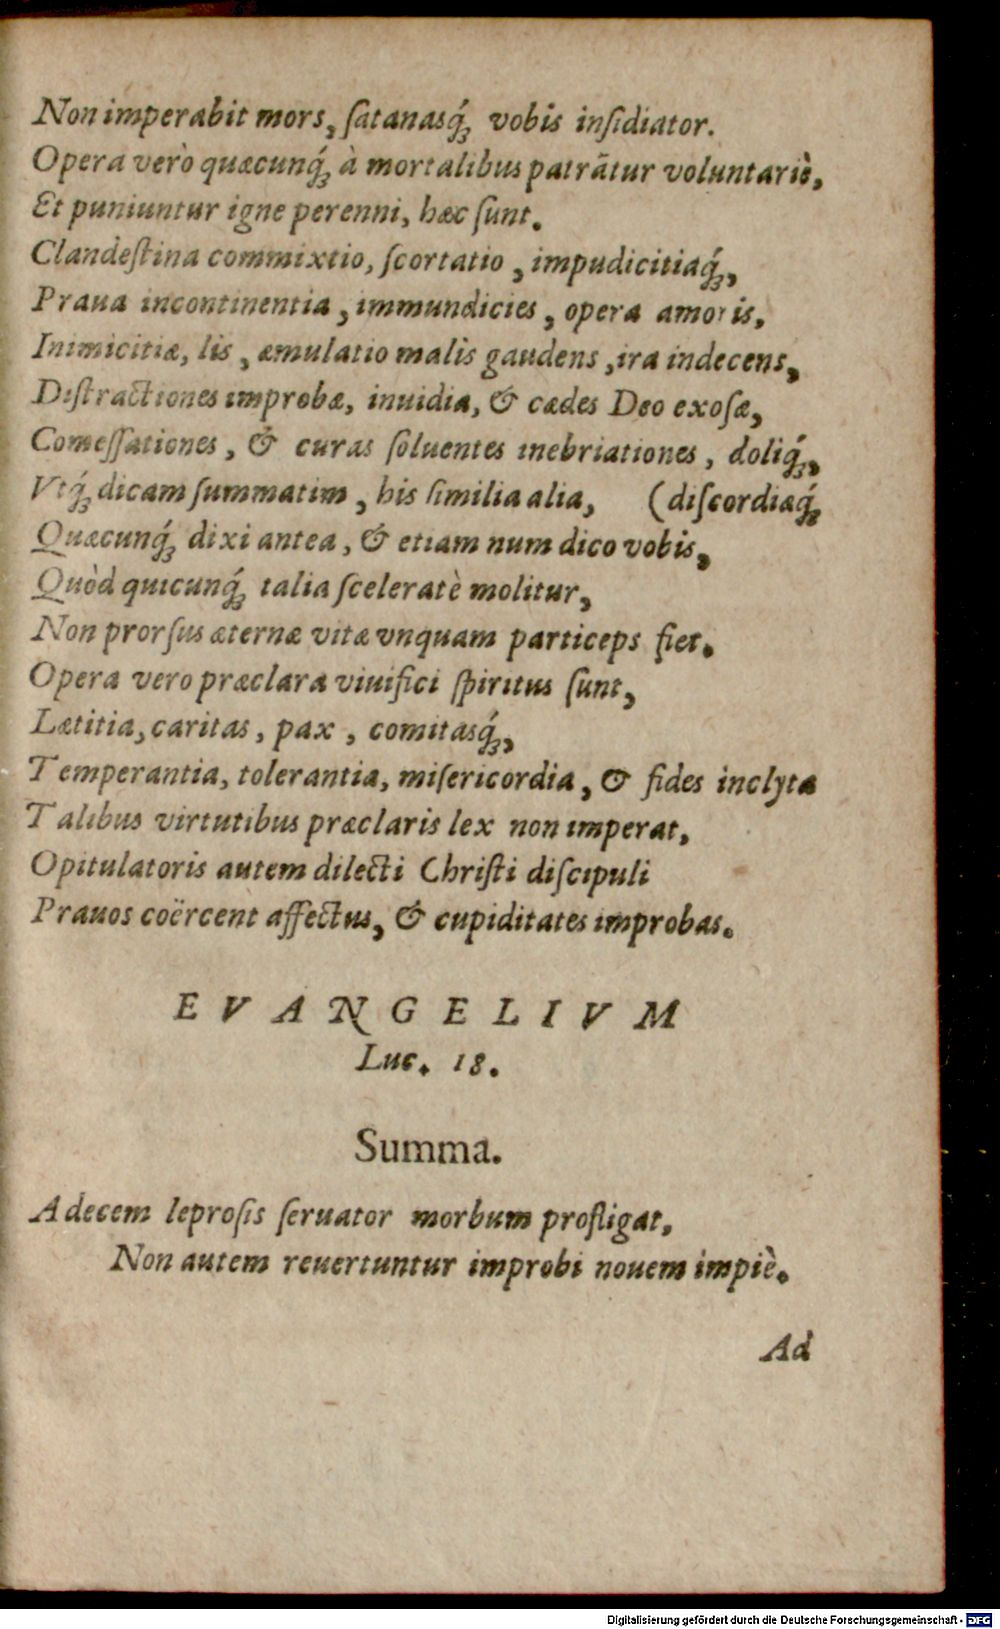 Non imperabit mors, ſatanasq́ꝫ vobis inſidiator.
Opera verò quæcunq́ꝫ à mortalibus patrātur voluntariè,
Et puniuntur igne perenni, hæc ſunt.
Clandeſtina commixtio, ſcortatio, impudicitiaq́ꝫ,
Praua incontinentia, immundicies, opera amoris,
Inimicitiæ, lis, æmulatio malis gaudens, ira indecens,
Diſtractiones improbæ, inuidia, & cædes Deo exoſæ,
Comeſſationes, & curas ſoluentes inebriationes, doliq́ꝫ,
Vtq́ꝫ dicam ſummatim, his ſimilia alia, (diſcordiaq́ꝫ
Quæcunq́ꝫ dixi antea, & etiam num dico vobis,
Quòd quicunq́ꝫ talia ſceleratè molitur,
Non prorſus æternæ vitæ vnquam particeps fiet.
Opera vero præclara viuifici ſpiritus ſunt,
Lætitia, caritas, pax, comitasq́ꝫ,
Temperantia, tolerantia, miſericordia, & fides inclyta
Talibus virtutibus præclaris lex non imperat,
Opitulatoris autem dilecti Chriſti diſcipuli
Prauos coërcent affectus, & cupiditates improbas.
EVANGELIVM
Luc. 18.
Summa.
A decem leproſis ſeruator morbum profligat,
Non autem reuertuntur improbi nouem impiè.
Ad
Digitalisierung gefördert durch die Deutsche Forschungsgemeinschaft - DFG